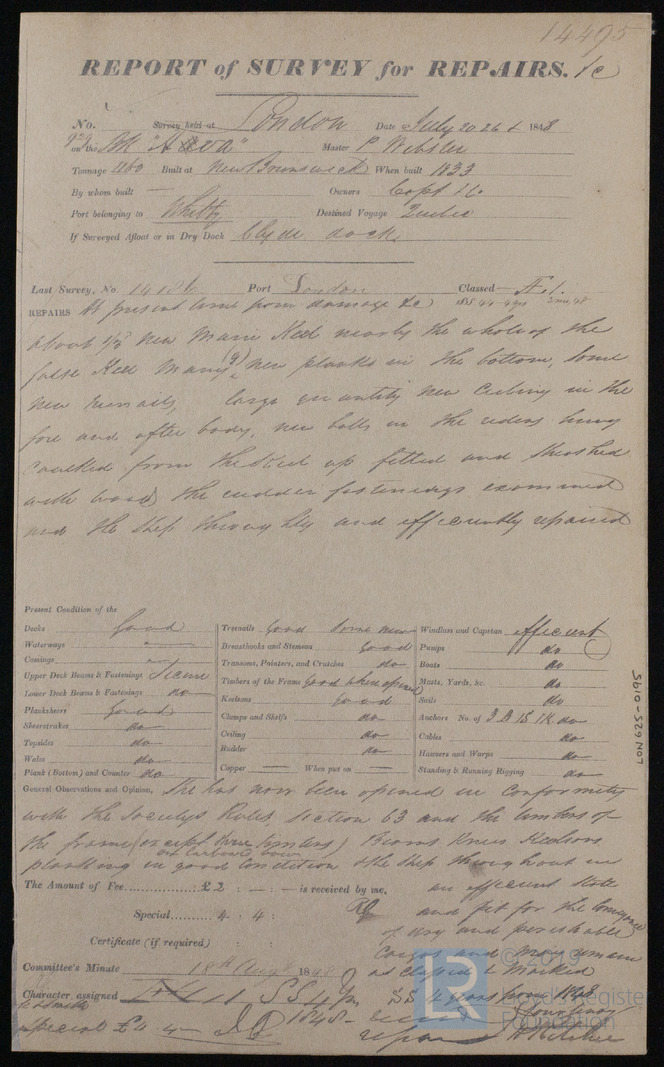 14495
REPORT of SURVEY for REPAIRS. &c
No. Survey held at London Date July 20 26 & 1848
on the Master P Webster
Tonnage 1160 Built at New Brunswick When built 1833
By whom built — Owners Capt & Co
Port belonging to Whitby Destined Voyage Quebec
If Surveyed Afloat or in Dry Dock Clyde dock
Last Survey, No. Port London Classed
REPAIRS At present time from damage &c
about 1/3 new Main Keel nearly the whole of the
false Keel Many (9) new planks in the bottom, some
new treenails, large quantity new Ceiling in the
fore and after body, new bolts in the riders hung
caulked from the Keel up felted and sheathed
with wood the rudder fastenings examined
and the Ship throughly and efficiently repaired
Present Condition of the
Decks Good
Waterways —
Comings —
Upper Deck Beams & Fastenings Seem
Lower Deck Beams & Fastenings do
Planksheers Good
Sheerstrakes do
Topsides do
Wales do
Plank (Bottom) and Counter do
Treenails Good Some new
Breasthooks and Stemson Good
Transoms, Pointers, and Crutches do
Timbers of the Frame Good when opened
Keelsons Good
Clamps and Shelfs do
Ceiling do
Rudder do
Copper — When put on —
Windlass and Capstan efficient
Pumps do
Boats do
Masts, Yards, &c. do
Sails do
Anchors No. of 3 B 1S 1K do
Cables do
Hawsers and Warps do
Standing & Running Rigging do
LON625-0195
General Observations and Opinion, She has now been opened in conformity
with the Societys Rules Section 63 and the timbers of
the frame (except three timbers) Beams Knees Keelsons
on Larboard bow
planking in good condition & the Ship throughout in
The Amount of Fee............£2 : — : — is received by me, an efficient state
Special......... 4 : 4 : and fit for the conveyance
of dry and perishable
Certificate (if required) : Cargos and may remain
Committee's Minute 18th Augt 1848 as Classed & Marked
Character assigned SS 4 years from 1848
Special £4 . 4 —
© 2019
LR
Lloyd's Register
Foundation